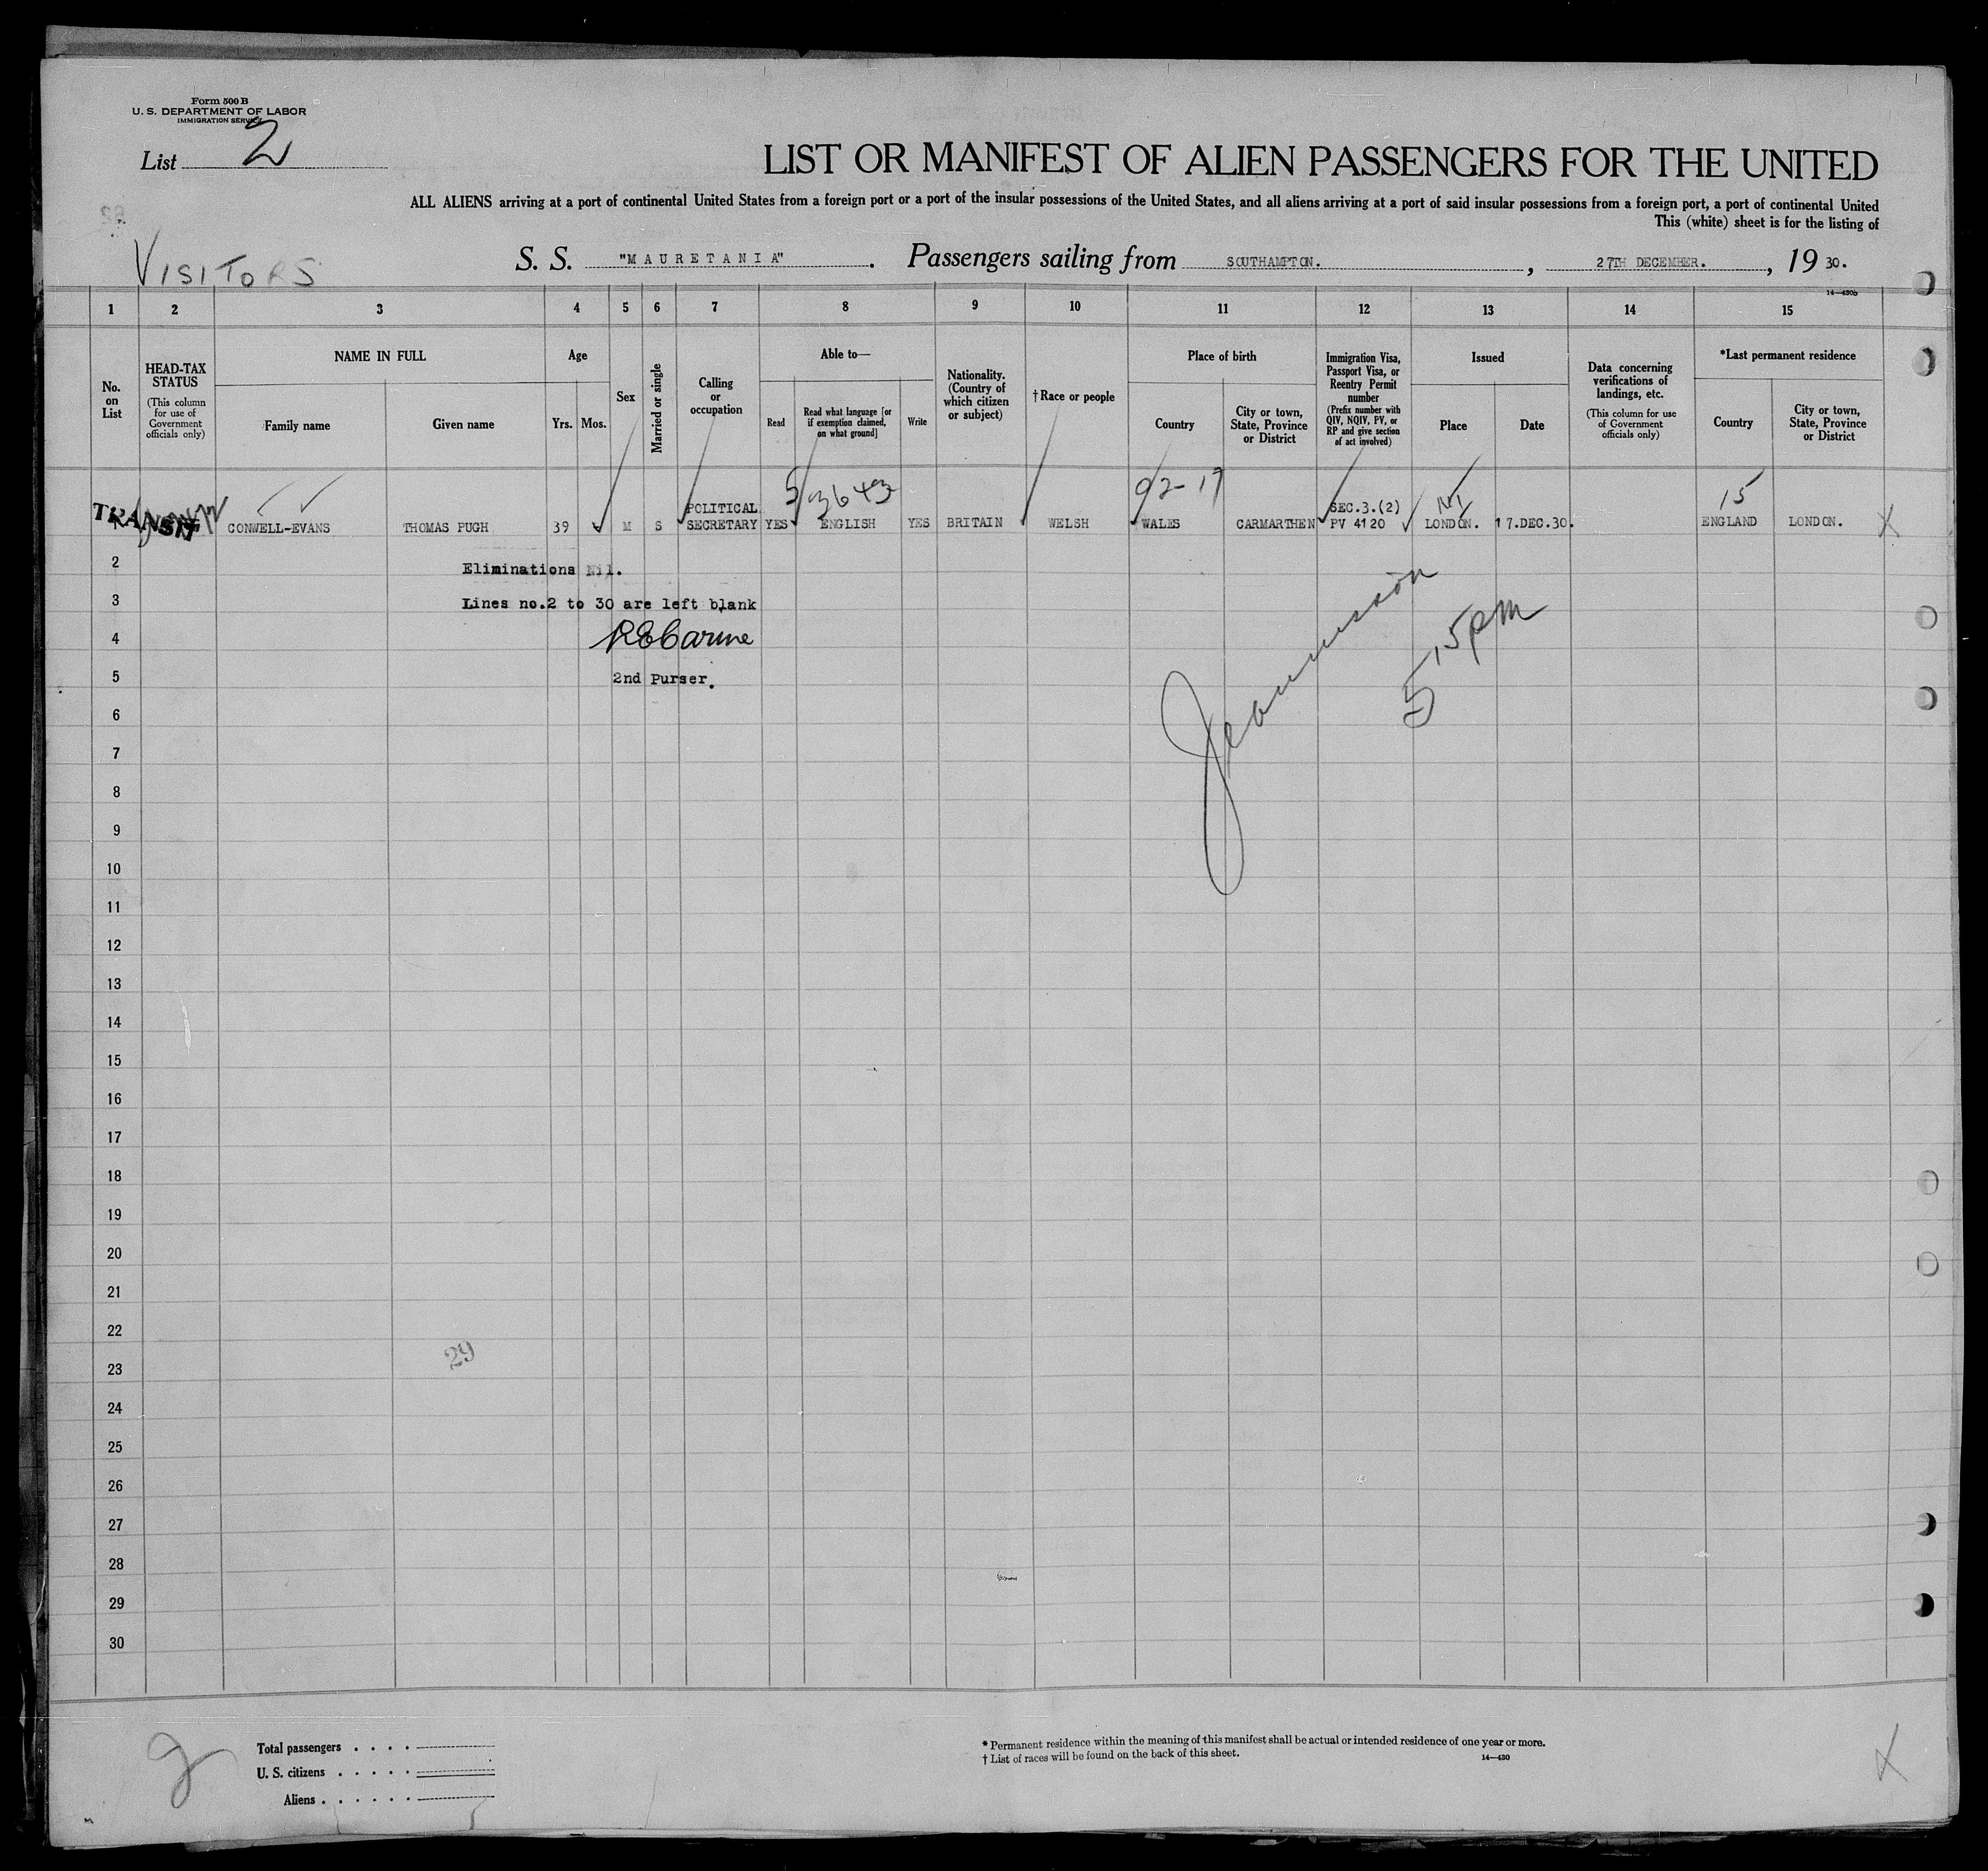 Form 500 B
U. S. DEPARTMENT OF LABOR
IMMIGRATION SERVICE
List 2
LIST OR MANIFEST OF ALIEN PASSENGERS FOR THE UNITED
ALL ALIENS arriving at a port of continental United States from a foreign port or a port of the insular possessions of the United States, and all aliens arriving at a port of said insular possessions from a foreign port, a port of continental United
This (white) sheet is for the listing of
VISITORS
S. S. "MAURETANIA". Passengers sailing from SOUTHAMPTON. , 27TH DECEMBER. , 19 30.
14—430b
1 2 3 4 5 6 7 8 9 10 11 12 13 14 15
No. on List
HEAD-TAX STATUS
(This column for use of Government officials only)
NAME IN FULL
Family name
Given name
Age
Yrs.
Mos.
Sex
Married or single
Calling or occupation
Able to—
Read
Read what language [or if exemption claimed, on what ground]
Write
Nationality. (Country of which citizen or subject)
† Race or people
Place of birth
Country
City or town, State, Province or District
Immigration Visa, Passport Visa, or Reentry Permit number
(Prefix number with QIV, NQIV, PV, or RP and give section of act involved)
Issued
Place
Date
Data concerning verifications of landings, etc.
(This column for use of Government officials only)
*Last permanent residence
Country
City or town, State, Province or District
5/3643
92-17
15
TRANSIT CONWELL-EVANS THOMAS PUGH 39 M S POLITICAL SECRETARY YES ENGLISH YES BRITAIN WELSH WALES CARMARTHEN SEC.3.(2) PV 4120 LONDON. 17.DEC.30. ENGLAND LONDON. X
2
Eliminations Nil.
3
Lines no.2 to 30 are left blank
4
5
2nd Purser.
515pm
6
7
8
9
10
11
12
13
14
15
16
17
18
19
20
21
22
23
29
24
25
26
27
28
29
30
2
Total passengers
U. S. citizens
Aliens
* Permanent residence within the meaning of this manifest shall be actual or intended residence of one year or more.
† List of races will be found on the back of this sheet.
14—430
X